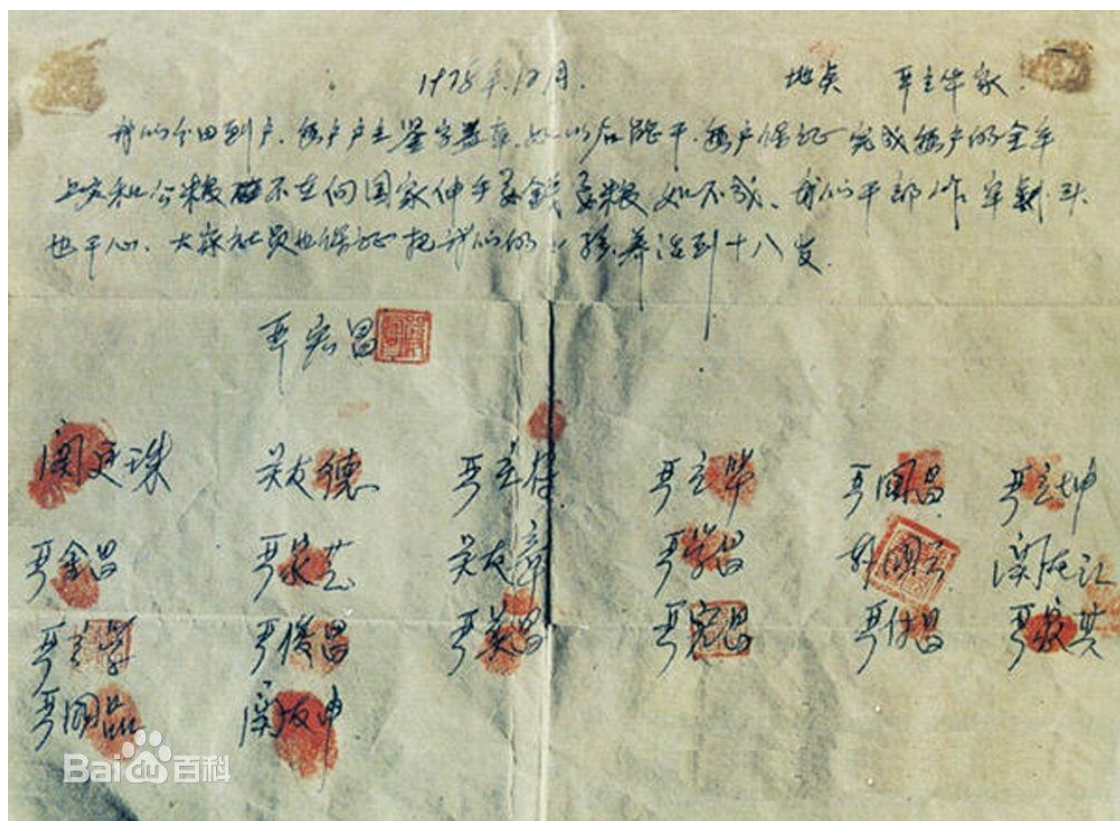 1978年12月. 地点 严立华家.
我们分田到户.每户户主签字盖章.如以后能干.每户保证完成每户的全年
上交和公粮 不在向国家伸手要钱要粮如不成、我们干部作牢杀头
也干心、大家社员也保证把我们的小孩养活到十八岁.
严宏昌
关廷珠 关友德 严立符 严立华 严国昌 严立坤
严金昌 严家芝 关友章 严学昌 韩国云 关友江
严立学 严俊昌 严美昌 严宏昌 严付昌 严家其
严国品 关友申
Baidu百科